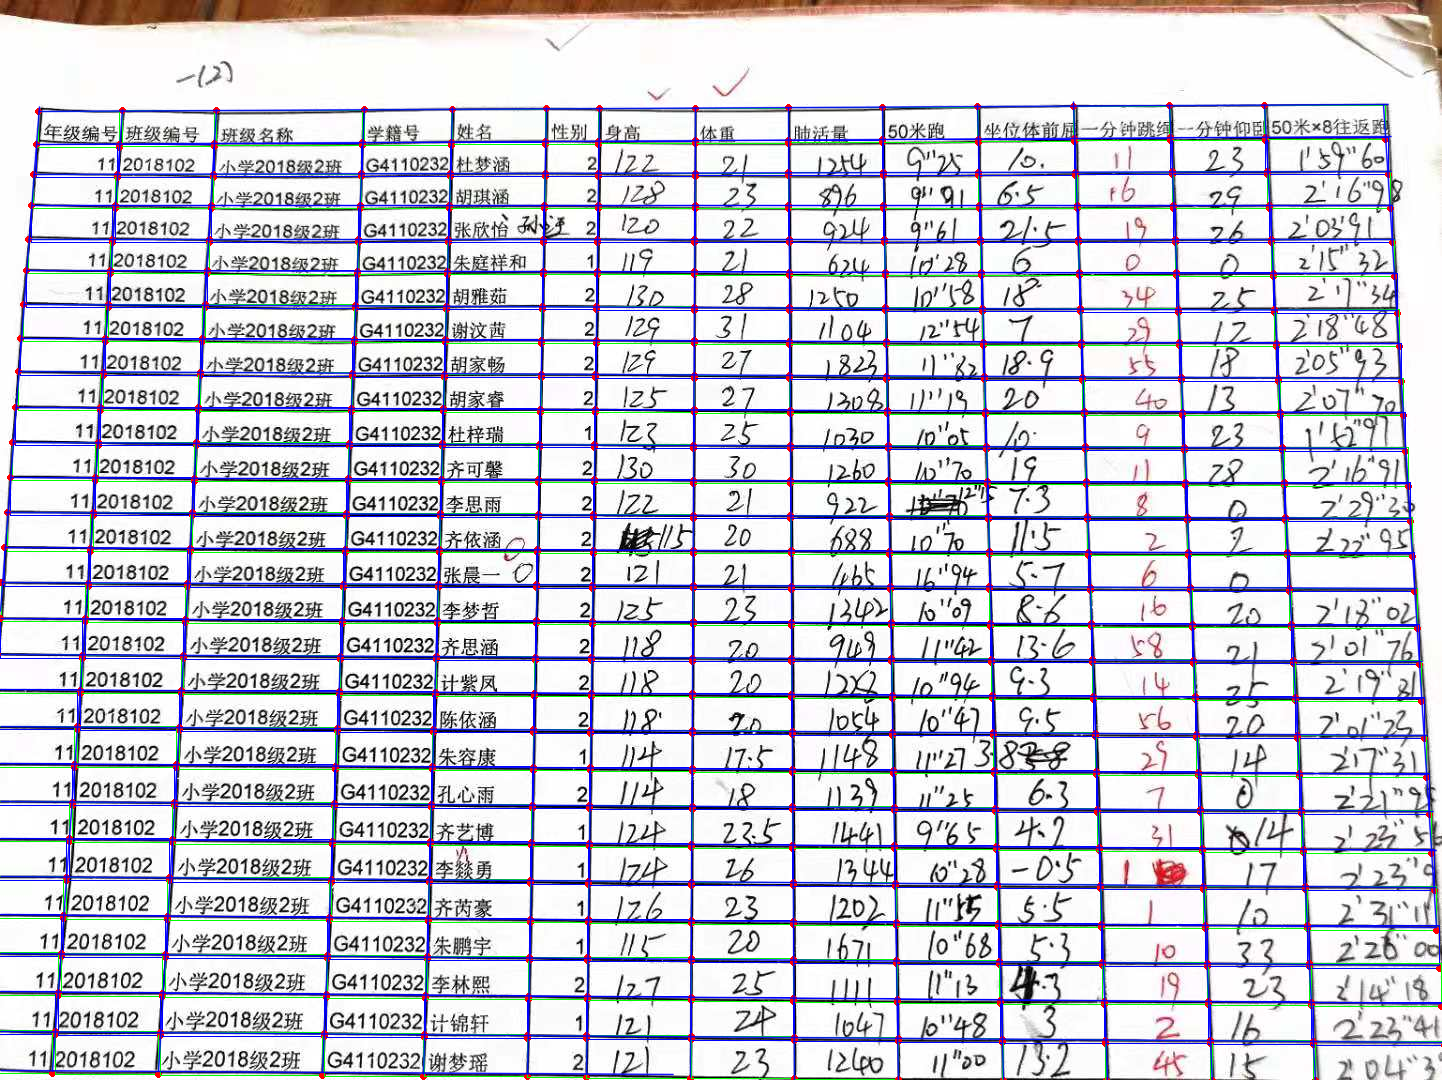 一(2)
年级编号 班级编号 班级名称 学籍号 姓名 性别 身高 体重 肺活量 50米跑 坐位体前屈 一分钟跳绳 一分钟仰卧 50米×8往返跑
11 2018102 小学2018级2班 G4110232 杜梦涵 2 122 21 1254 9"25 10. 11 23 1'59"60
11 2018102 小学2018级2班 G4110232 胡琪涵 2 128 23 896 9"91 6.5 16 29 2'16"98
11 2018102 小学2018级2班 G4110232 张欣怡 2 120 22 924 9"61 21.5 19 26 2'03"91
11 2018102 小学2018级2班 G4110232 朱庭祥和 1 119 21 624 10"28 6 0 0 2'15"32
11 2018102 小学2018级2班 G4110232 胡雅茹 2 130 28 1250 10"58 18 34 25 2'17"34
11 2018102 小学2018级2班 G4110232 谢汶茜 2 129 31 1104 12"54 7 29 12 2'18"48
11 2018102 小学2018级2班 G4110232 胡家畅 2 129 27 1823 11"82 18.9 55 18 2'05"93
11 2018102 小学2018级2班 G4110232 胡家睿 2 125 27 1308 11"19 20 40 13 2'07"70
11 2018102 小学2018级2班 G4110232 杜梓瑞 1 123 25 1030 10"05 10. 9 23 1'52"97
11 2018102 小学2018级2班 G4110232 齐可馨 2 130 30 1260 10"70 19 11 28 2'16"91
11 2018102 小学2018级2班 G4110232 李思雨 2 122 21 922 12"15 7.3 8 0 2'29"30
11 2018102 小学2018级2班 G4110232 齐依涵 2 115 20 688 10"70 11.5 2 2 2'22"95
11 2018102 小学2018级2班 G4110232 张晨一 0 2 121 21 465 16"94 5.7 6 0
11 2018102 小学2018级2班 G4110232 李梦哲 2 125 23 1342 10"09 8.6 16 20 2'18"02
11 2018102 小学2018级2班 G4110232 齐思涵 2 118 20 943 11"42 13.6 58 21 2'01"76
11 2018102 小学2018级2班 G4110232 计紫凤 2 118 20 1228 10"94 9.3 14 25 2'19"31
11 2018102 小学2018级2班 G4110232 陈依涵 2 118 20 1054 10"47 9.5 56 20 2'01"23
11 2018102 小学2018级2班 G4110232 朱容康 1 114 17.5 1148 11"27 29 14 2'17"31
11 2018102 小学2018级2班 G4110232 孔心雨 2 114 18 1139 11"25 6.3 7 0 2'21"95
11 2018102 小学2018级2班 G4110232 齐艺博 1 124 23.5 1441 9"65 4.2 31 14 2'23"56
11 2018102 小学2018级2班 G4110232 李燚勇 1 124 26 1344 10"28 -0.5 1 17 2'23"9
11 2018102 小学2018级2班 G4110232 齐芮豪 1 126 23 1202 11"55 5.5 1 10 2'31"11
11 2018102 小学2018级2班 G4110232 朱鹏宇 1 115 20 1671 10"68 5.3 10 33 2'26"00
11 2018102 小学2018级2班 G4110232 李林熙 2 127 25 1111 11"13 4.3 19 23 2'14"18
11 2018102 小学2018级2班 G4110232 计锦轩 1 121 24 1047 10"48 3 2 16 2'23"41
11 2018102 小学2018级2班 G4110232 谢梦瑶 2 121 23 1240 11"00 13.2 45 15 2'04"3